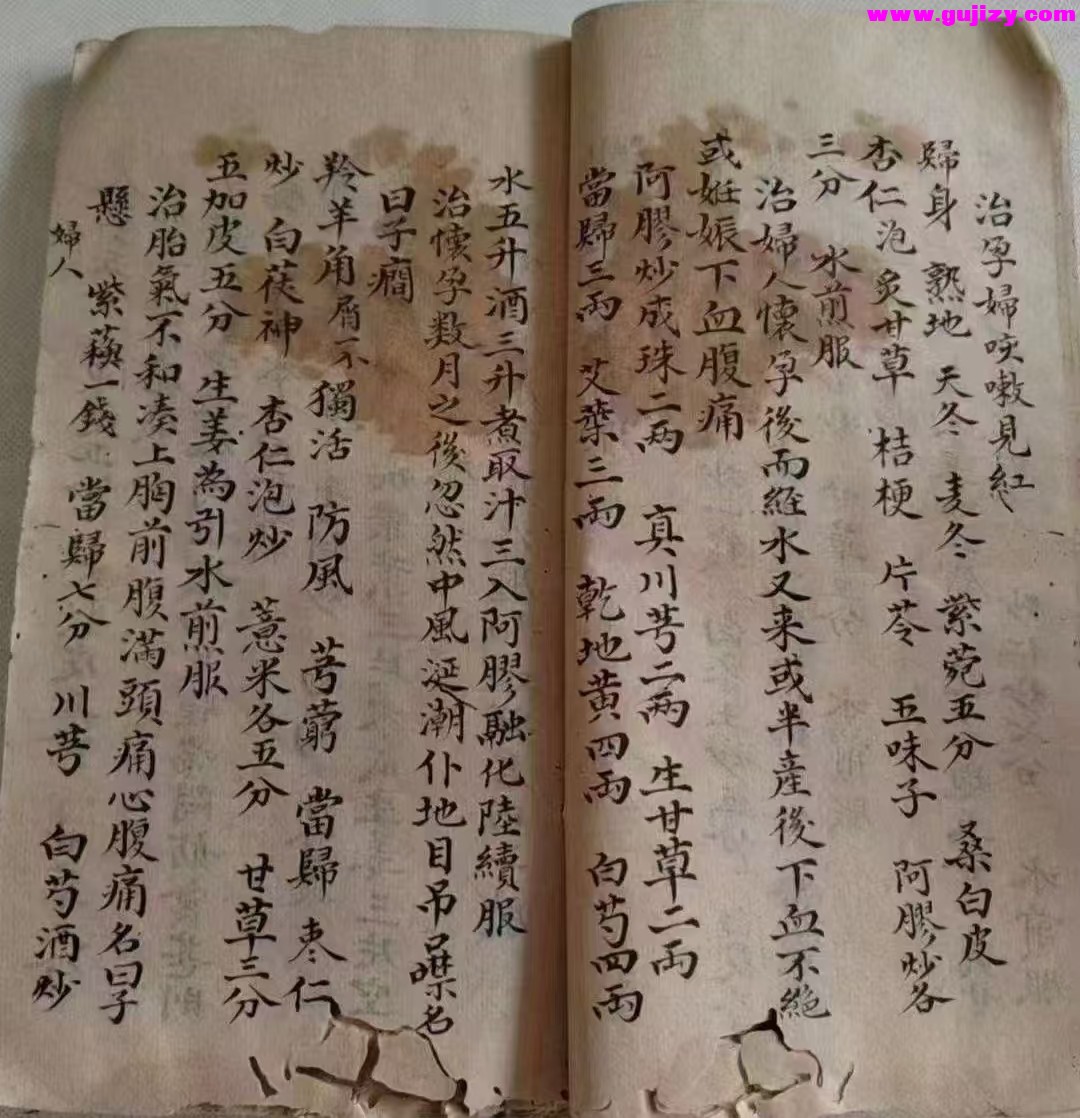 www.gujizy.com
治孕婦咳嗽見紅
歸身 熟地 天冬 麦冬 紫菀五分 桑白皮
杏仁泡 炙甘草 桔梗 片芩 五味子 阿膠炒各
三分 水煎服
治婦人懷孕後而經水又来或半產後下血不絕
或妊娠下血腹痛
阿膠炒成珠二两 真川芎二两 生甘草二两
當歸三兩 艾葉三兩 乾地黄四兩 白芍四兩
水五升酒三升煮取汁三入阿膠融化陸續服
治懷孕数月之後忽然中風涎潮仆地目吊口噤名
曰子癎
羚羊角屑一 獨活 防風 芎藭 當歸 枣仁
炒 白茯神 杏仁泡炒 薏米各五分 甘草三分
五加皮五分 生姜為引水煎服
治胎氣不和凑上胸前腹满頭痛心腹痛名曰子
懸 紫蘇一錢 當歸七分 川芎 白芍酒炒
婦人